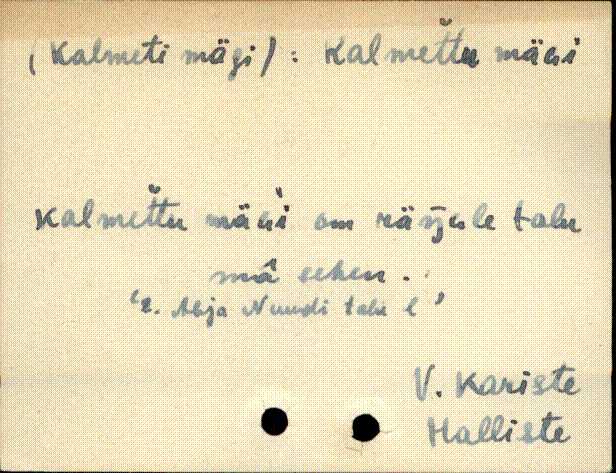 (Kalmeti mägi) : Kalmet̆tu mäGi
Kalmet̆tu mäGi om räŋGle talu
mâ sehen.
‘2. Abja Nuudi talu l’
V. Kariste
Halliste